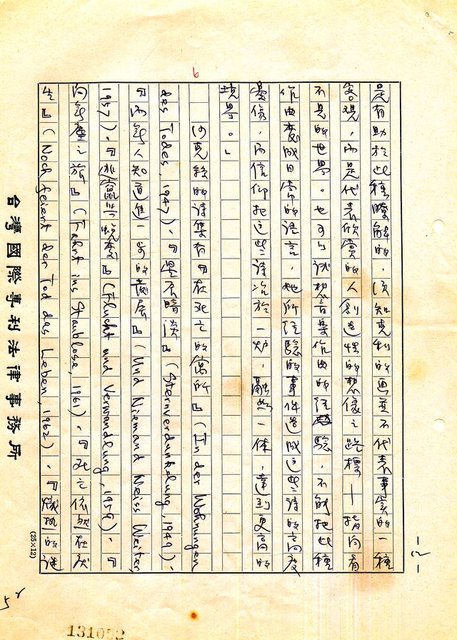 6
-2-
是有助於此種瞭解的，須知克利的画並不代表事實的一種
客觀，而是代表欣賞的人創造性的想像之路標——指向看
不見的世界。也可以試想音樂作曲的经驗，不能把此種
作曲变成日常的语言，她所经驗的事件造成這些诗的高度
憂傷，而信仰把這些诗冶於一炉，融然一体，達到更高的
境界。」
沙克絲的诗集有『在死亡的寓所』(In der Wohnungen
des Todes, 1947)、『星辰暗淡』(Sternverdunkelung, 1949)、
『而無人知道進一步的發展』(Und Niemand Weiss Weiter,
1957)、『逃亡與蛻变』(Flucht und Verwandlung, 1959)、『
向無塵之旅』(Fahrt ins Staublose, 1961)、『死亡依然在
生』(Noch feiert der Tod das Leben, 1962)、『熾热的謎
台灣國際專利法律事務所
(25×12)
131052